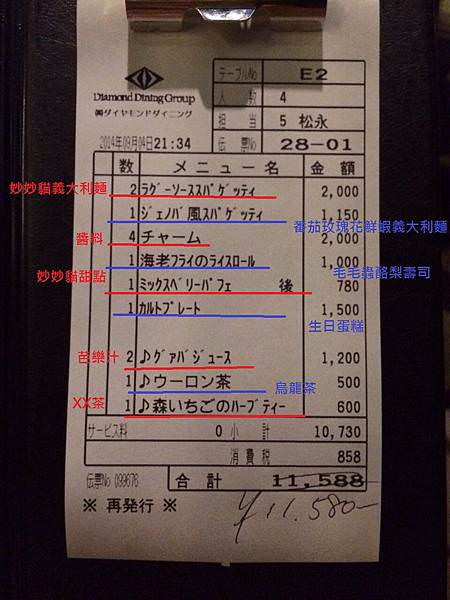 Diamond Dining Group
㈱ダイヤモンドダイニング
テーブルNo E2
人数 4
担当 5 松永
2014年09月04日21:34
伝票No 28-01
数 メニュー名 金額
妙妙貓義大利麵
2 ラグーソーススパゲッティ 2,000
1 ジェノバ風スパゲッティ 1,150
番茄玫瑰花鮮蝦義大利麵
醬料
4 チャーム 2,000
1 海老フライのライスロール 1,000
毛毛蟲酪梨壽司
妙妙貓甜點
1 ミックスベリーパフェ 後 780
1 カルトプレート 1,500
生日蛋糕
芭樂汁
2 ♪グァバジュース 1,200
1 ♪ウーロン茶 500
烏龍茶
XX茶
1 ♪森いちごのハーブティー 600
サービス料 0 小計 10,730
消費税 858
伝票No 099676
合計 11,588
※ 再発行 ※
¥11.580-